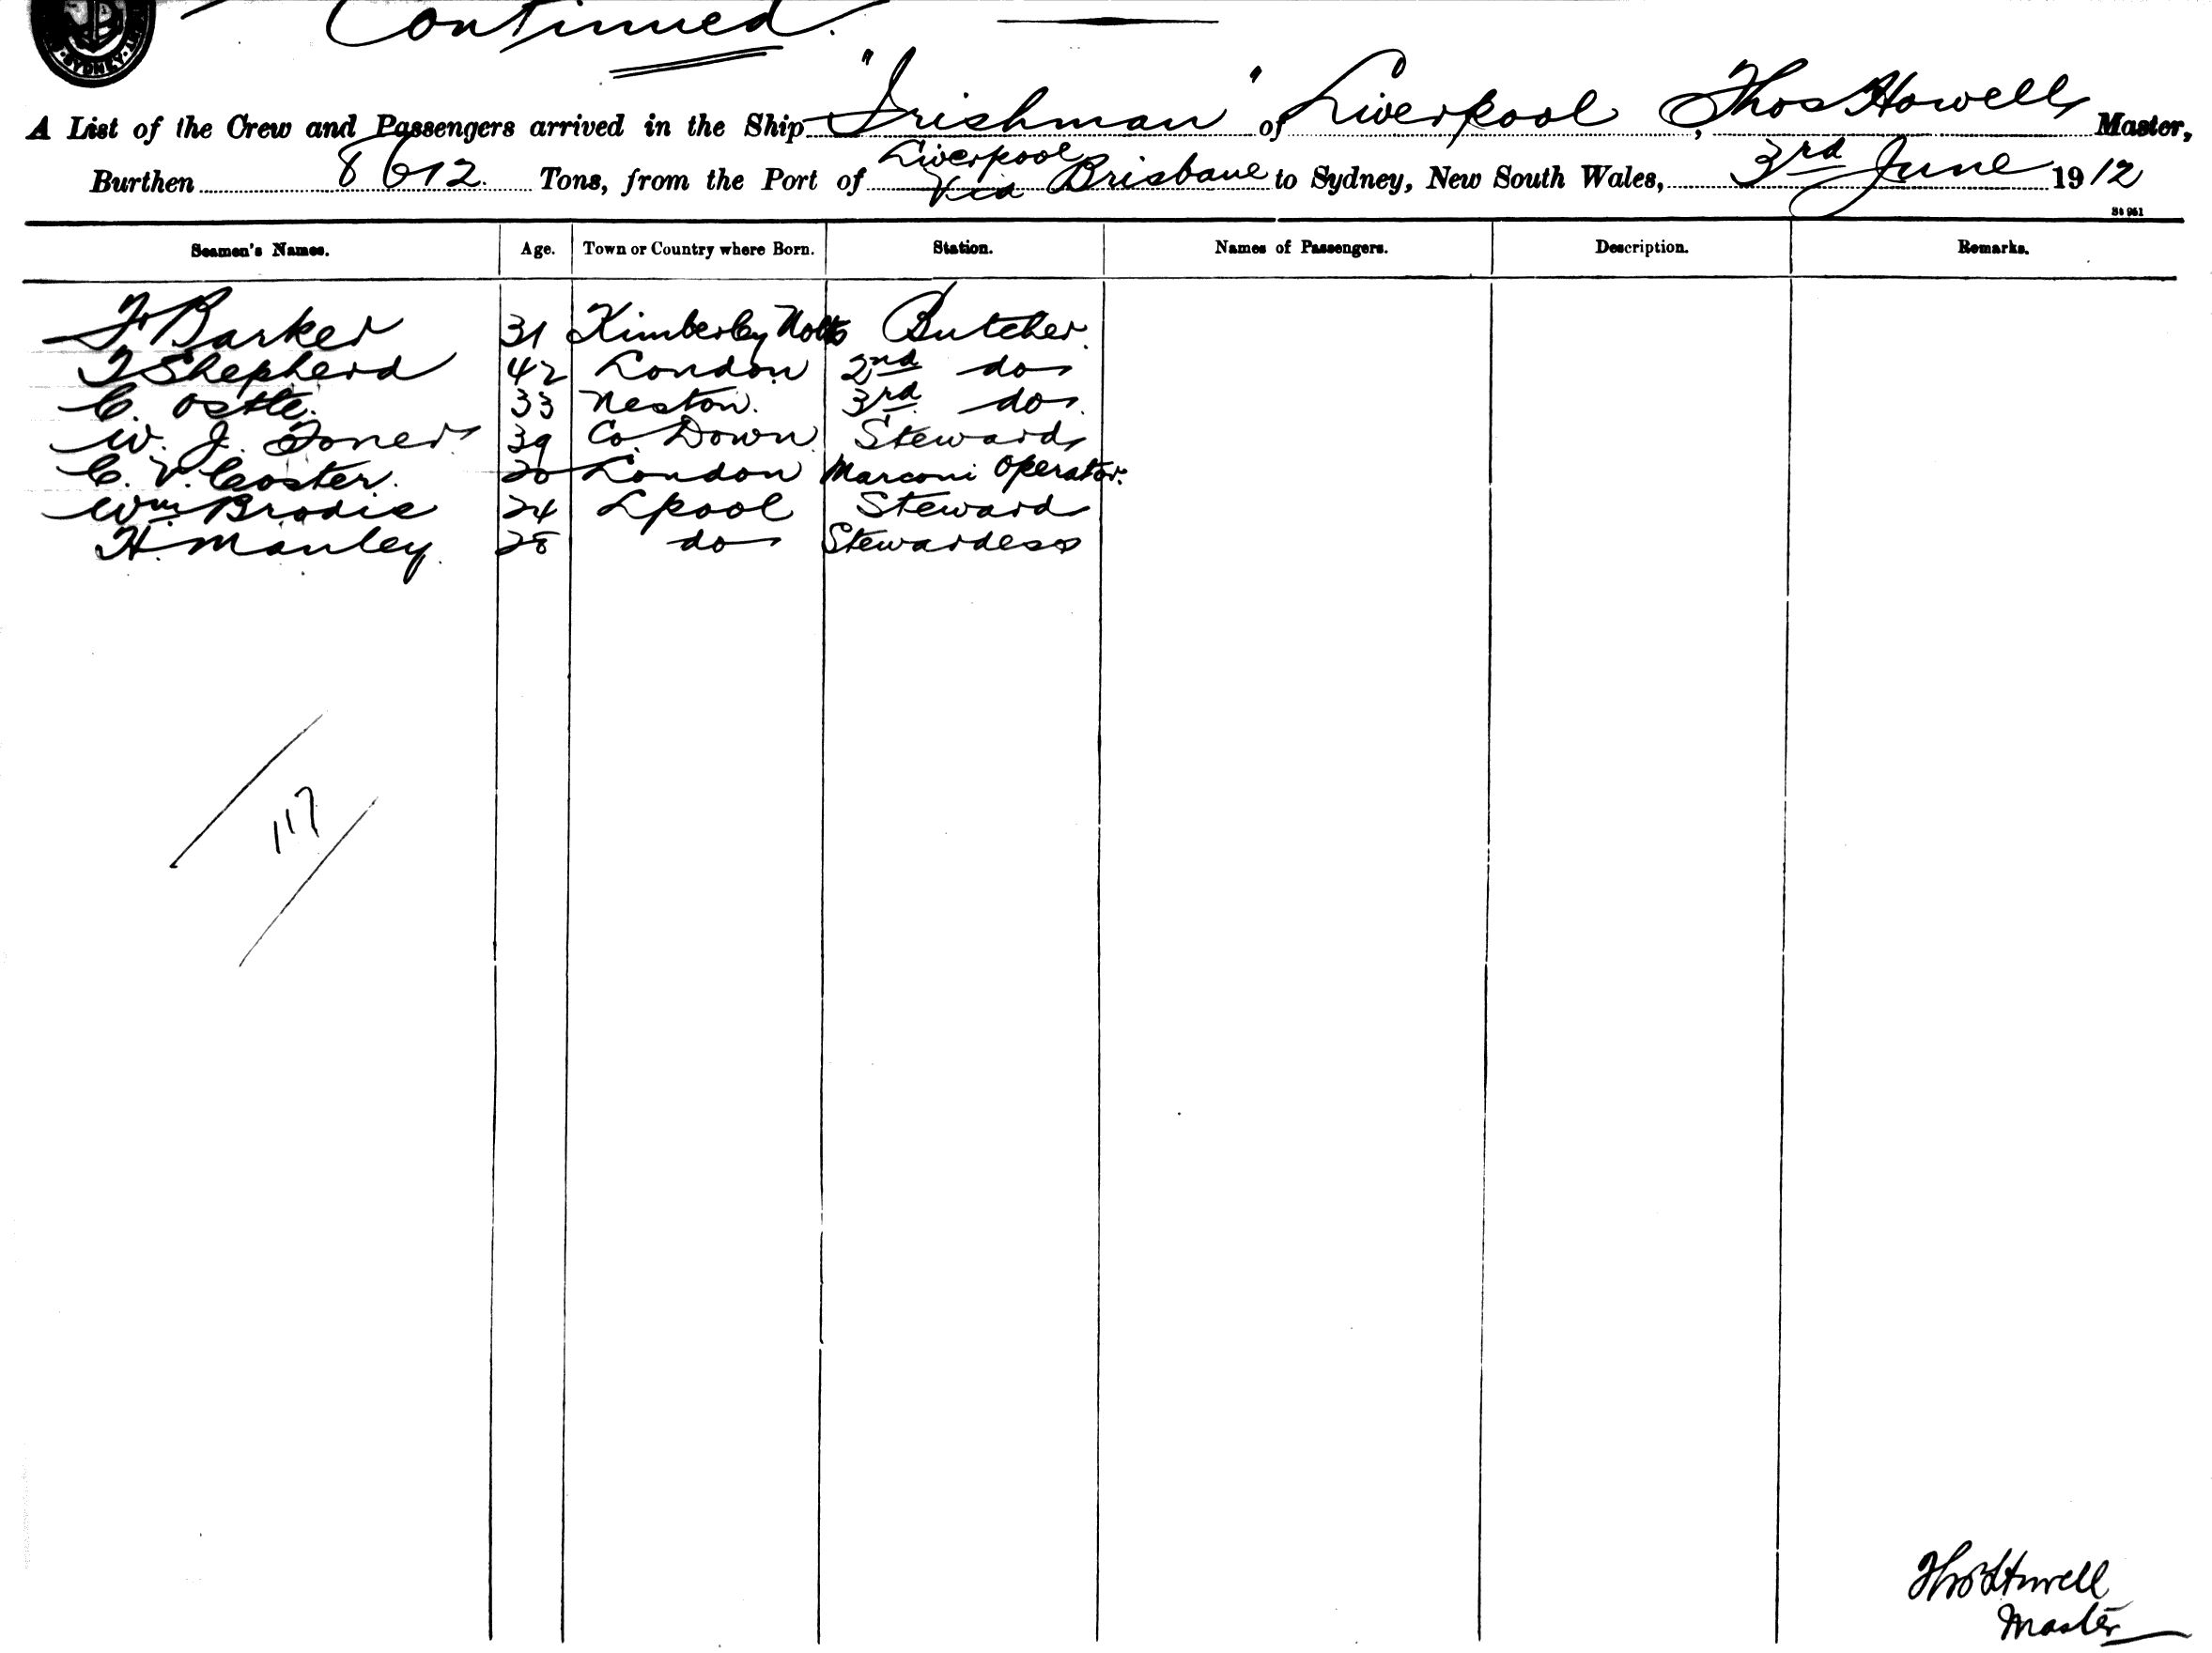 Continued.
SYDNEY
A List of the Crew and Passengers arrived in the Ship "Irishman" of Liverpool, Thos Howell Master,
Liverpool
Burthen 8612. Tons, from the Port of Via Brisbane to Sydney, New South Wales, 3rd June 1912
Seamen's Names. Age. Town or Country where Born. Station. Names of Passengers. Description. Remarks.
F Barker 31 Kimberley Notts Butcher.
T Shepherd 42 London 2nd do
C. Ostle. 33 Neston. 3rd do.
W. J. Toner 39 Co. Down Steward
C. V. Coster. 20 London Marconi Operator.
Wm Brodie 24 Lpool Steward
H. Manley. 28 do Stewardess
117
Thos Howell
Master